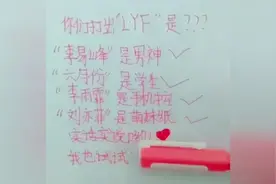 你们打出"LYF"是???
"李易峰"是男神✓
"六月份"是学生✓
"李雨霏"是手机控✓
"刘亦菲"是萌妹纸✓
我也试试